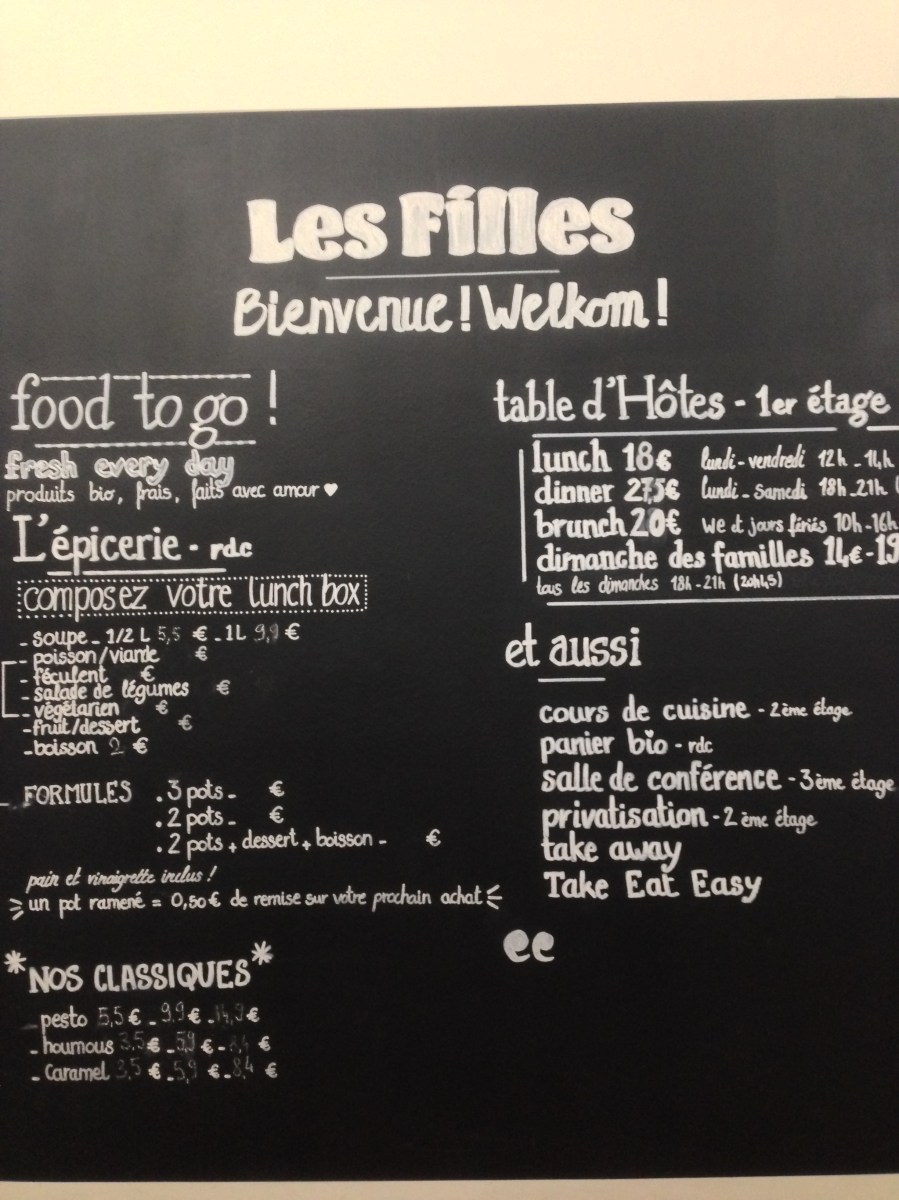 Les Filles
Bienvenue! Welkom!
food to go !
fresh every day
produits bio, frais, faits avec amour ♥
L'épicerie - rdc
composez votre lunch box
- soupe - 1/2 L 5,5 € - 1L 9,9 €
- poisson/viande €
- féculent €
- salade de légumes €
- végétarien €
- fruit/dessert €
- boisson 2 €
FORMULES . 3 pots - €
. 2 pots - €
. 2 pots + dessert + boisson - €
pain et vinaigrette inclus !
un pot ramené = 0,50€ de remise sur votre prochain achat
*NOS CLASSIQUES*
- pesto 5,5 € - 9,9 € - 14,9 €
- houmous 3,5 € - 5,9 € - 8,4 €
- Caramel 3,5 € - 5,9 € - 8,4 €
table d'Hôtes - 1er étage
lunch 18€ lundi-vendredi 12h - 14h
dinner 27,5€ lundi - samedi 18h - 21h (
brunch 20€ we et jours fériés 10h - 16h
dimanche des familles 14€ - 19
tous les dimanches 18h - 21h (20h45)
et aussi
cours de cuisine - 2ème étage
panier bio - rdc
salle de conférence - 3ème étage
privatisation - 2ème étage
take away
Take Eat Easy
ee